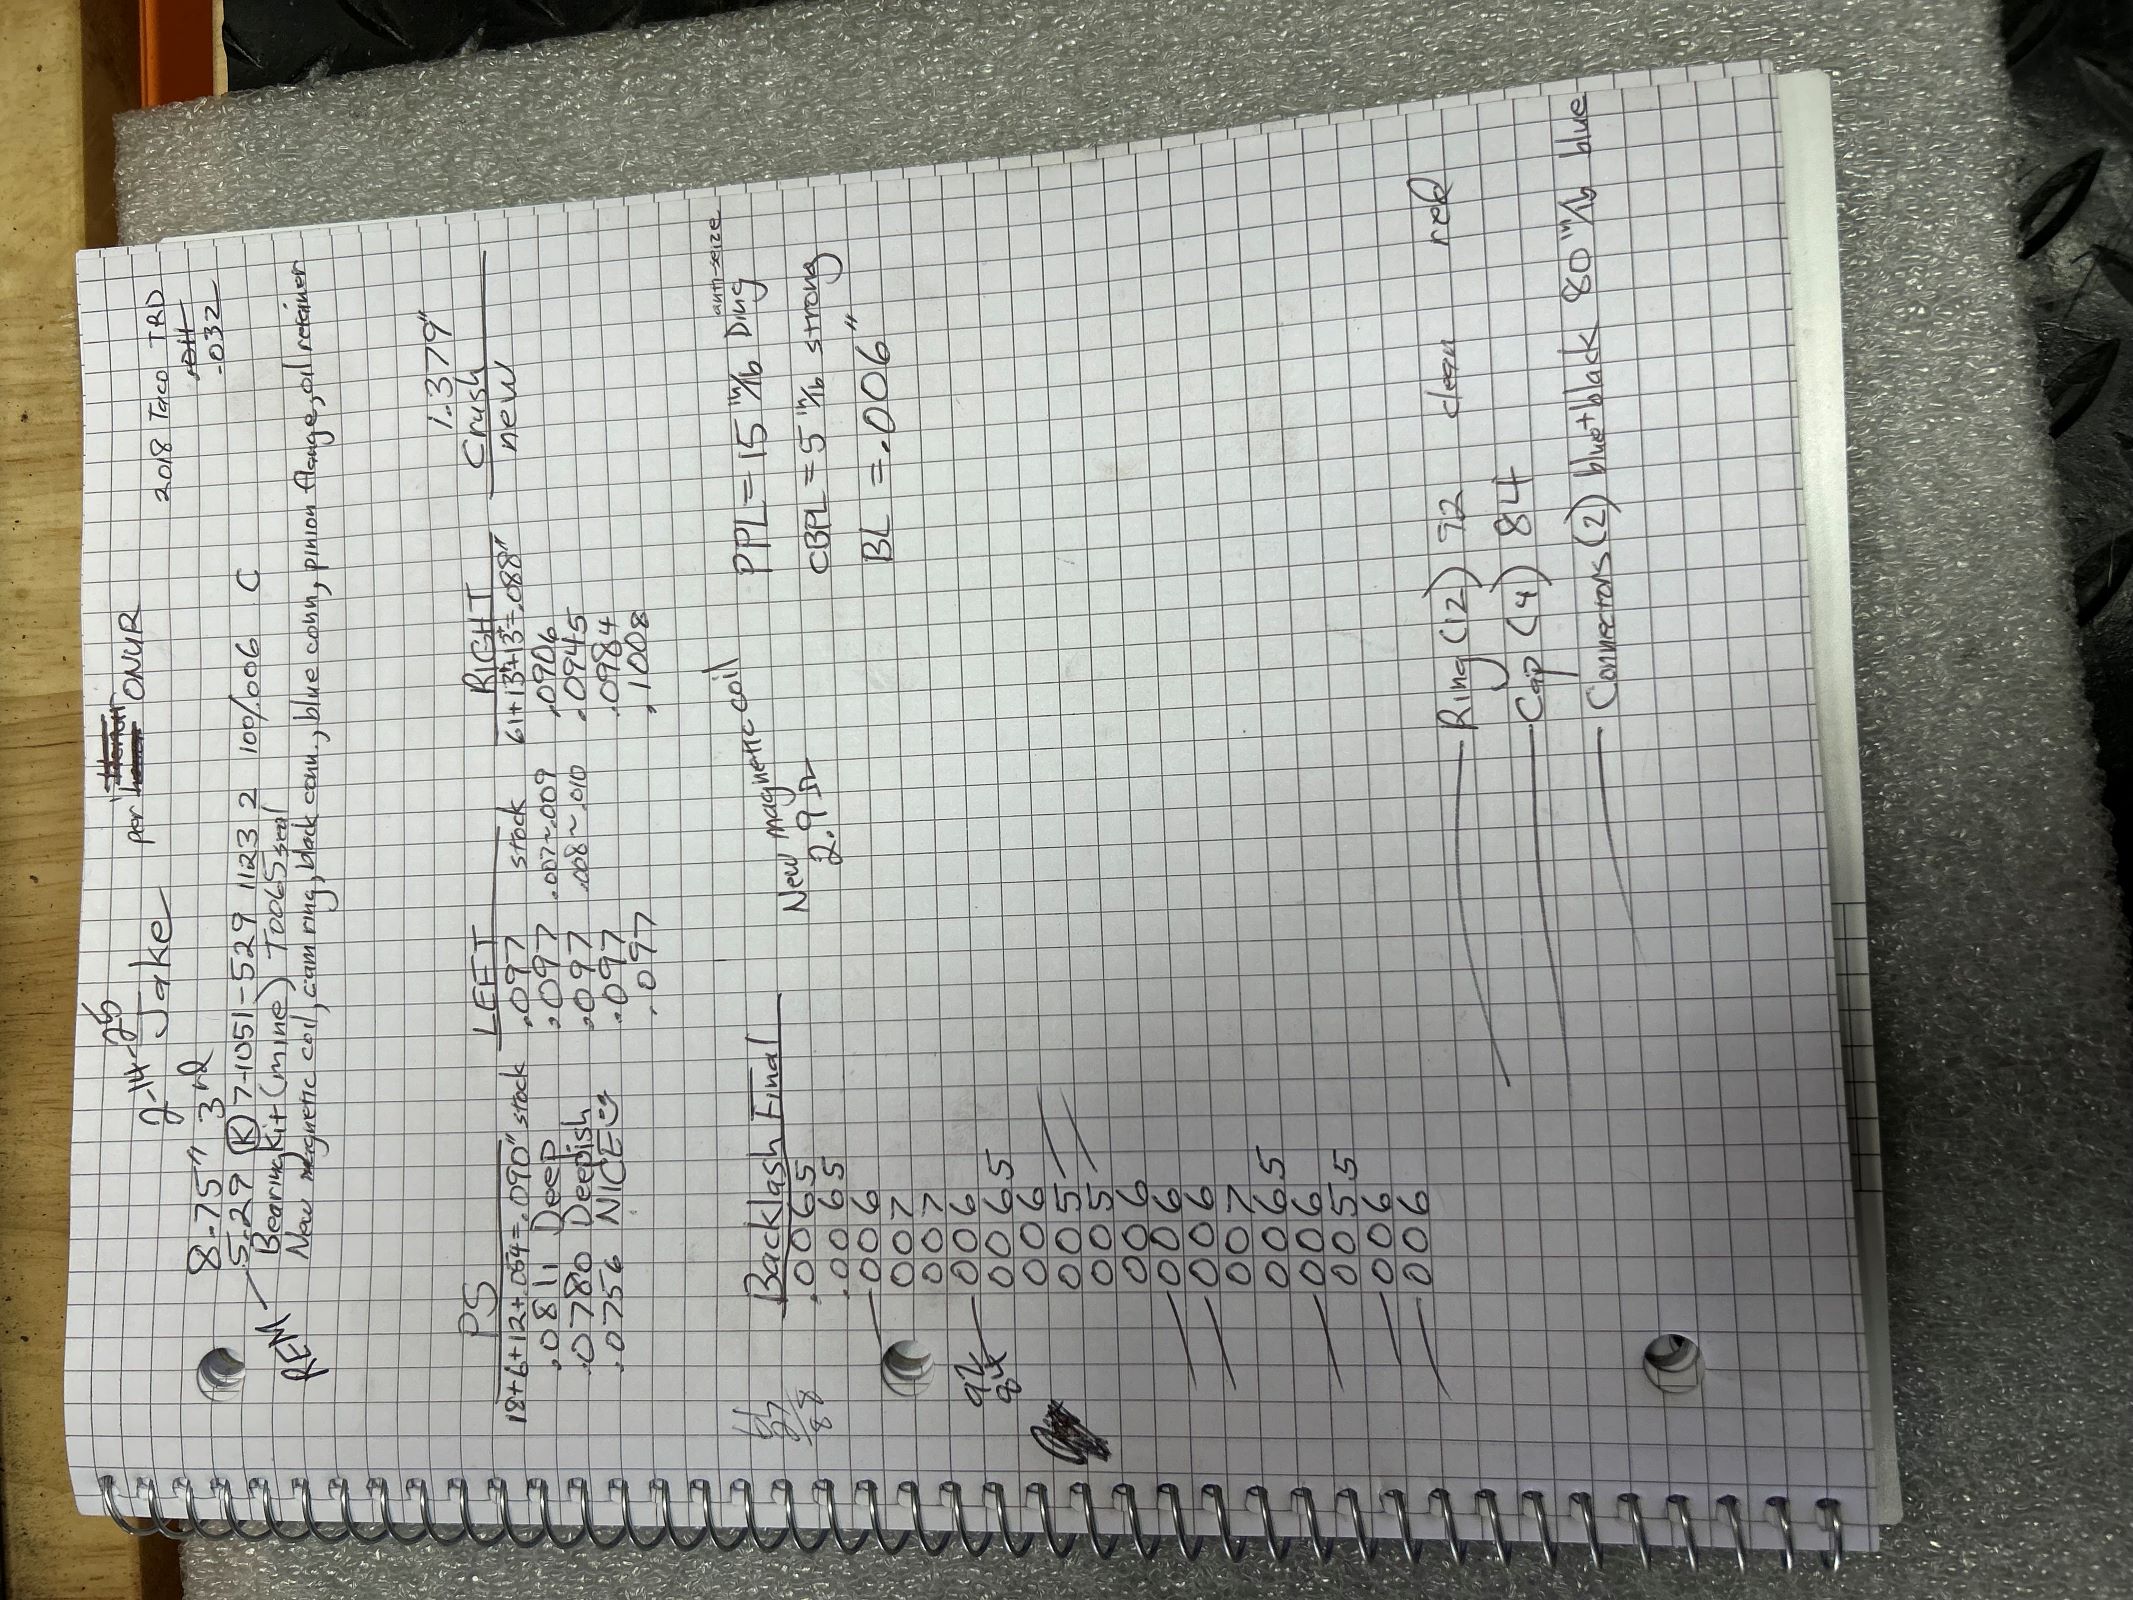 2-14-26
Jake per ONUR
8.75" 3rd 2018 Taco TRD
5.29 (K) 7-1051-529 1123 2 100/.006 C -.032
REM Bearing Kit (mine) T0065 seal
New magnetic coil, cam ring, black conn., blue conn, pinion flange, oil retainer
1.379"
PS LEFT RIGHT Crush
18+6+12+.054=.090" stock .097 stock 61+13+13=.088" new
.0811 Deep .097 .007~.009 .0906
.0780 Deepish .097 .008~.010 .0945
.0756 NICE .097 .0984
.097 .1008
61
27
88
Backlash Final New magnetic coil PPL = 15 in/lb Ding anti-seize
.0065 2.9 Ω CBPL = 5 in/lb strong
.0065 BL = .006"
006
007
007
92 006
84 0065
006
005
005
006
006
006
007
0065
006
0055
006
006
Ring (12) 92 clean red
Cap (4) 84
Connectors (2) blue+black 80 in/lb blue